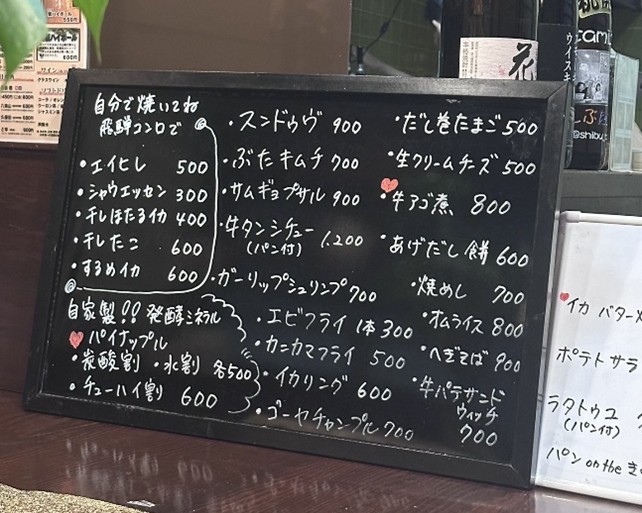 自分で焼いてね
飛騨コンロで
・エイヒレ 500
・シャウエッセン 300
・干しほたるイカ 400
・干したこ 600
・するめイカ 600
自家製!! 発酵ミネラル
パイナップル
・炭酸割 ・水割 各500
・チューハイ割 600
・スンドゥヴ 900
・ぶたキムチ 700
・サムギョプサル 900
・牛タンシチュー
(パン付) 1,200
・ガーリップシュリンプ 700
・エビフライ 1本 300
・カニカマフライ 500
・イカリング 600
・ゴーヤチャンプル 700
・だし巻たまご 500
・生クリームチーズ 500
・牛アゴ煮 800
・あげだし餅 600
・焼めし 700
・オムライス 800
・へぎそば 900
・牛パテサンド
ウィッチ
700
イカ バター
ポテトサラ
ラタトゥユ
(パン付)
パン on the き
花
ウイスキ
@shibu